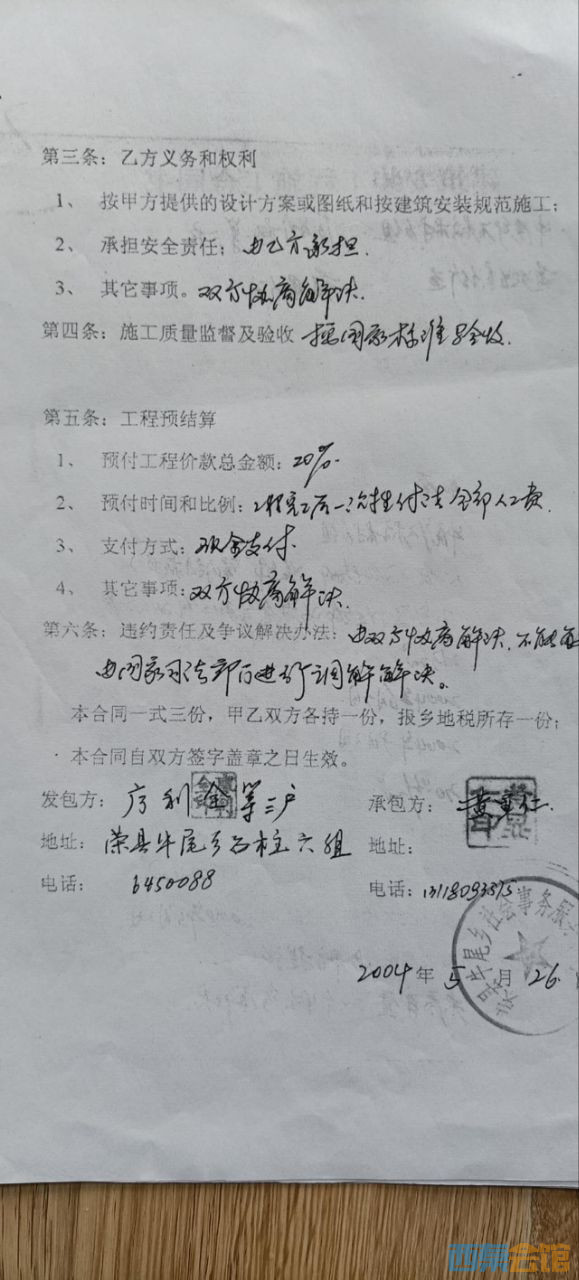 第三条：乙方义务和权利
1、 按甲方提供的设计方案或图纸和按建筑安装规范施工；
2、 承担安全责任；由乙方承担.
3、 其它事项。双方协商解决.
第四条：施工质量监督及验收 按国家标准验收.
第五条：工程预结算
1、 预付工程价款总金额：20%.
2、 预付时间和比例：工程完工后一次性付清全部人工费.
3、 支付方式：现金支付.
4、 其它事项：双方协商解决.
第六条：违约责任及争议解决办法：由双方协商解决.不能
由国家司法部门进行调解解决。
本合同一式三份，甲乙双方各持一份，报乡地税所存一份；
本合同自双方签字盖章之日生效。
发包方： 利金等三户 承包方：
地址： 荣县牛尾乡石柱六组 地址：
电话： 6450088 电话：
2004年5月26
牛尾乡社会事务服
西部会馆